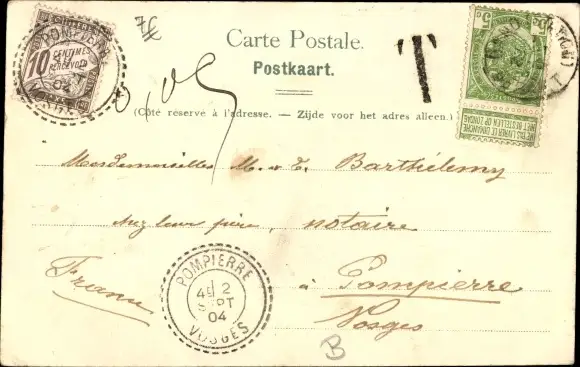 7€
Carte Postale.
Postkaart.
(Côté reservé à l'adresse. — Zijde voor het adres alleen.)
T
0,05
10
CENTIMES
A
PERCEVOIR
POMPIERRE
5c
5c
NE PAS LIVRER LE DIMANCHE
NIET BESTELLEN OP ZONDAG
Mesdemoiselles M. & T. Barthélemy
chez leur père, notaire
à Pompierre
France
Vosges
POMPIERRE
2
SEPT
04
VOSGES
B